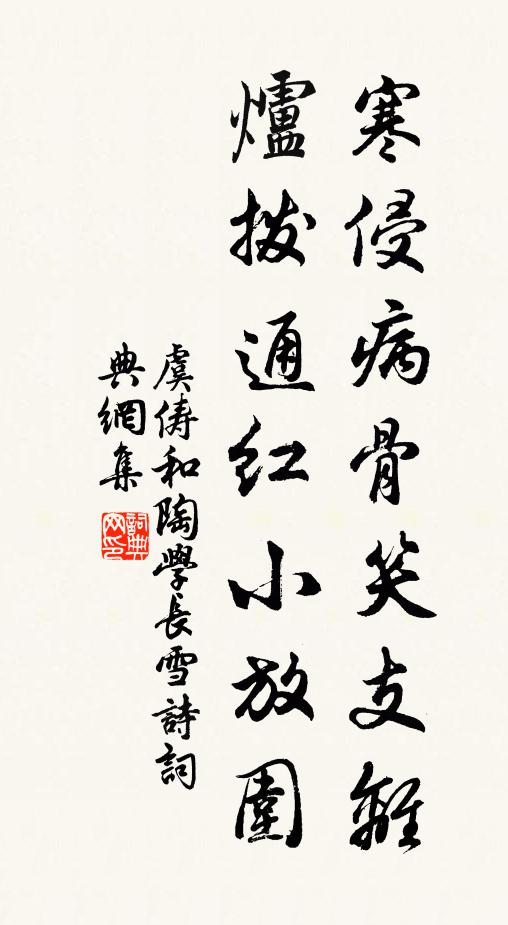 寒侵病骨笑支離
爐撥通紅小放圍
虞儔和陶學長雪詩詞
典網集
詞典網印